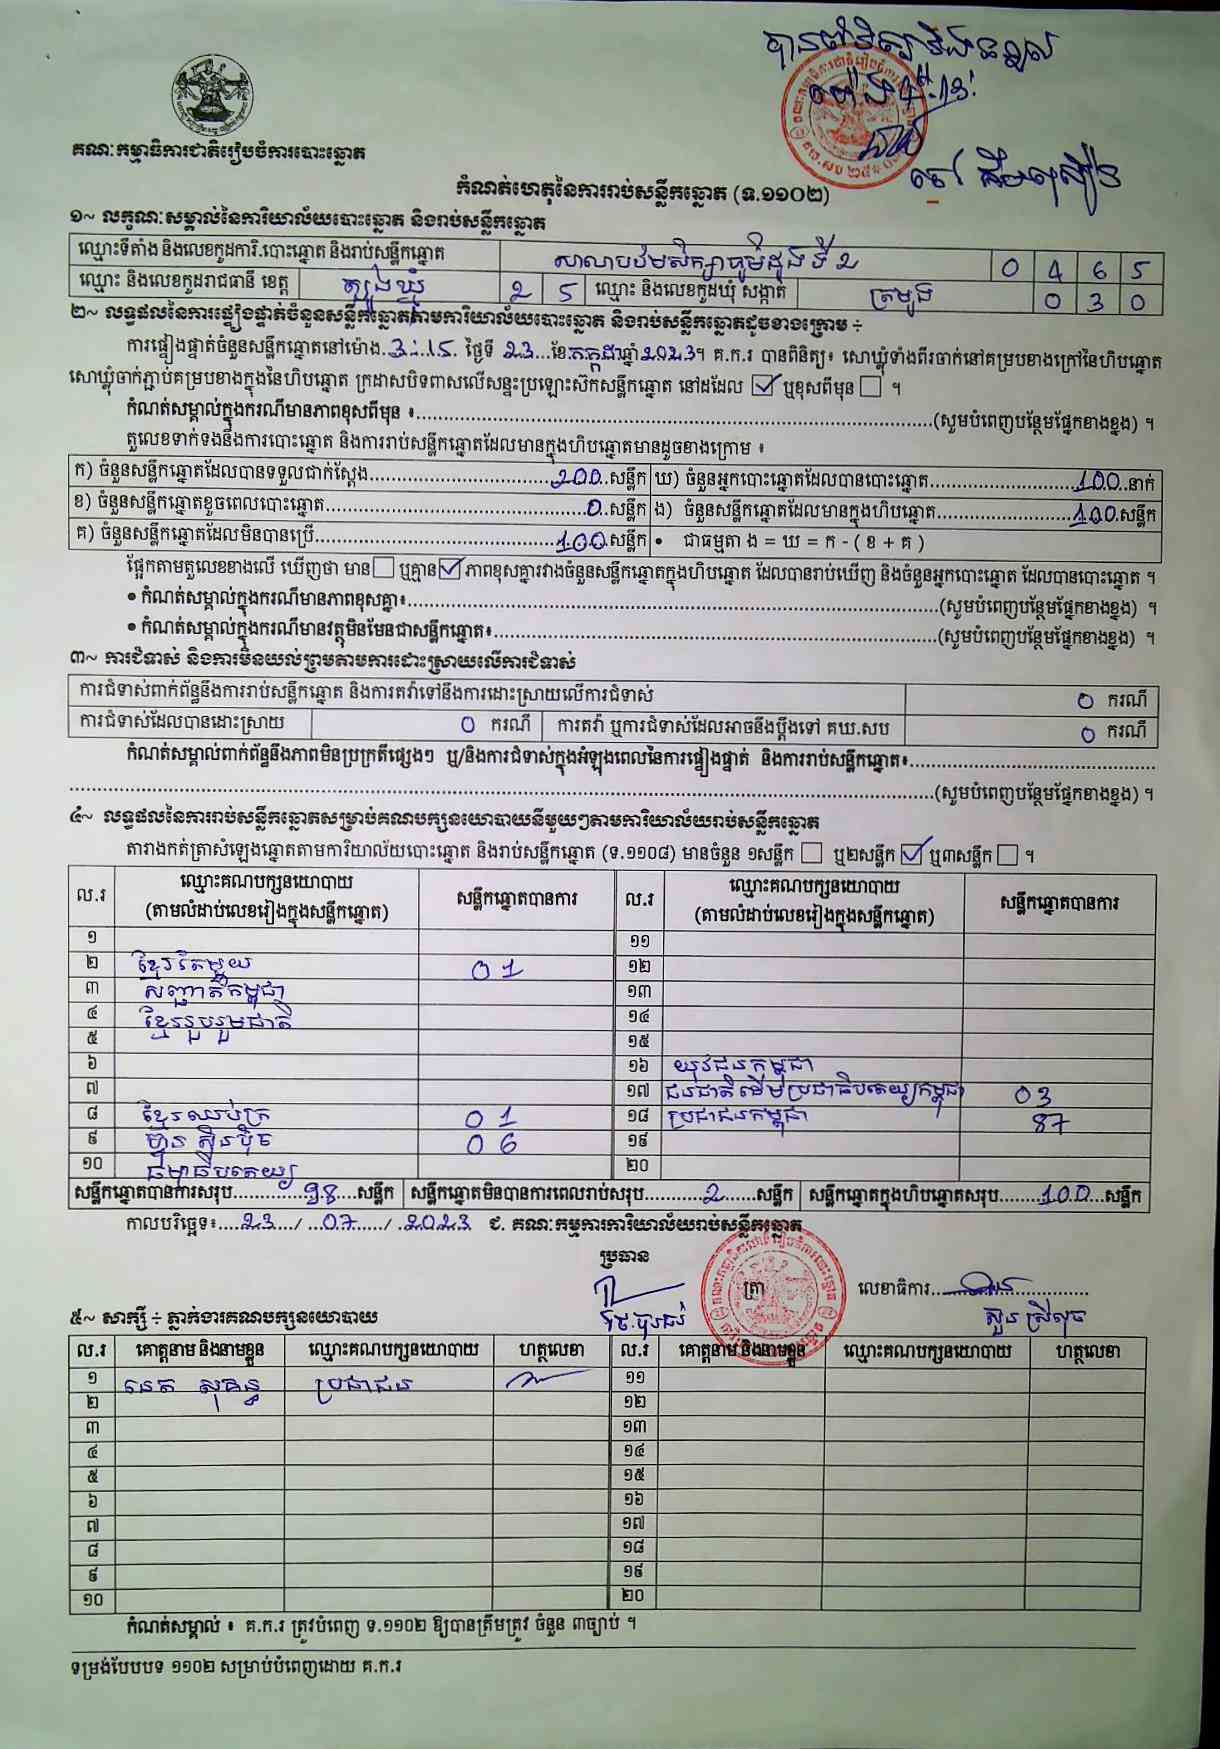 បានពិនិត្យ និងទទួល
ម៉ោង 4:13
គណៈកម្មាធិការជាតិរៀបចំការបោះឆ្នោត
កំណត់ហេតុនៃការរាប់សន្លឹកឆ្នោត (ទ.១១០២)
១~ លក្ខណៈសម្គាល់នៃការិយាល័យបោះឆ្នោត និងរាប់សន្លឹកឆ្នោត
ឈ្មោះទីតាំង និងលេខកូដការិ.បោះឆ្នោត និងរាប់សន្លឹកឆ្នោត សាលាបឋមសិក្សាភូមិដូងទី 2 0 4 6 5
ឈ្មោះ និងលេខកូដរាជធានី ខេត្ត ត្បូងឃ្មុំ 2 5 ឈ្មោះ និងលេខកូដឃុំ សង្កាត់ ត្រមូង 0 3 0
២~ លទ្ធផលនៃការផ្ទៀងផ្ទាត់ចំនួនសន្លឹកឆ្នោតតាមការិយាល័យបោះឆ្នោត និងរាប់សន្លឹកឆ្នោតដូចខាងក្រោម ÷
ការផ្ទៀងផ្ទាត់ចំនួនសន្លឹកឆ្នោតនៅម៉ោង.3:15. ថ្ងៃទី 23...ខែកក្កដាឆ្នាំ2023។ គ.ក.រ បានពិនិត្យ៖ សោឃ្លុំទាំងពីរចាក់នៅគម្របខាងក្រៅនៃហិបឆ្នោត
សោឃ្លុំចាក់ភ្ជាប់គម្របខាងក្នុងនៃហិបឆ្នោត ក្រដាសបិទពាសលើសន្ទះប្រឡោះស៊កសន្លឹកឆ្នោត នៅដដែល ☑ ឬខុសពីមុន ☐ ។
កំណត់សម្គាល់ក្នុងករណីមានភាពខុសពីមុន ៖............(សូមបំពេញបន្ថែមផ្នែកខាងខ្នង) ។
តួលេខទាក់ទងនឹងការបោះឆ្នោត និងការរាប់សន្លឹកឆ្នោតដែលមានក្នុងហិបឆ្នោតមានដូចខាងក្រោម ៖
ក) ចំនួនសន្លឹកឆ្នោតដែលបានទទួលជាក់ស្តែង............200..សន្លឹក ឃ) ចំនួនអ្នកបោះឆ្នោតដែលបានបោះឆ្នោត............100..នាក់
ខ) ចំនួនសន្លឹកឆ្នោតខូចពេលបោះឆ្នោត............0..សន្លឹក ង) ចំនួនសន្លឹកឆ្នោតដែលមានក្នុងហិបឆ្នោត............100..សន្លឹក
គ) ចំនួនសន្លឹកឆ្នោតដែលមិនបានប្រើ............100..សន្លឹក • ជាធម្មតា ង = ឃ = ក - ( ខ + គ )
ផ្អែកតាមតួលេខខាងលើ ឃើញថា មាន ☐ ឬគ្មាន ☑ ភាពខុសគ្នារវាងចំនួនសន្លឹកឆ្នោតក្នុងហិបឆ្នោត ដែលបានរាប់ឃើញ និងចំនួនអ្នកបោះឆ្នោត ដែលបានបោះឆ្នោត ។
• កំណត់សម្គាល់ក្នុងករណីមានភាពខុសគ្នា៖............(សូមបំពេញបន្ថែមផ្នែកខាងខ្នង) ។
• កំណត់សម្គាល់ក្នុងករណីមានវត្ថុមិនមែនជាសន្លឹកឆ្នោត៖............(សូមបំពេញបន្ថែមផ្នែកខាងខ្នង) ។
៣~ ការជំទាស់ និងការមិនយល់ព្រមតាមការដោះស្រាយលើការជំទាស់
ការជំទាស់ពាក់ព័ន្ធនឹងការរាប់សន្លឹកឆ្នោត និងការតវ៉ាទៅនឹងការដោះស្រាយលើការជំទាស់ 0 ករណី
ការជំទាស់ដែលបានដោះស្រាយ 0 ករណី ការតវ៉ា ឬការជំទាស់ដែលអាចនឹងប្តឹងទៅ គឃ.សប 0 ករណី
កំណត់សម្គាល់ពាក់ព័ន្ធនឹងភាពមិនប្រក្រតីផ្សេងៗ ឬ/និងការជំទាស់ក្នុងអំឡុងពេលនៃការផ្ទៀងផ្ទាត់ និងការរាប់សន្លឹកឆ្នោត៖............
............(សូមបំពេញបន្ថែមផ្នែកខាងខ្នង) ។
៤~ លទ្ធផលនៃការរាប់សន្លឹកឆ្នោតសម្រាប់គណបក្សនយោបាយនីមួយៗតាមការិយាល័យរាប់សន្លឹកឆ្នោត
តារាងកត់ត្រាសំឡេងឆ្នោតតាមការិយាល័យបោះឆ្នោត និងរាប់សន្លឹកឆ្នោត (ទ.១១០៨) មានចំនួន ១សន្លឹក ☐ ឬ២សន្លឹក ☑ ឬ៣សន្លឹក ☐ ។
ល.រ ឈ្មោះគណបក្សនយោបាយ សន្លឹកឆ្នោតបានការ ល.រ ឈ្មោះគណបក្សនយោបាយ សន្លឹកឆ្នោតបានការ
(តាមលំដាប់លេខរៀងក្នុងសន្លឹកឆ្នោត) (តាមលំដាប់លេខរៀងក្នុងសន្លឹកឆ្នោត)
១ ១១
២ ខ្មែរតែមួយ 01 ១២
៣ សញ្ជាតិកម្ពុជា ១៣
៤ ខ្មែររួបរួមជាតិ ១៤
៥ ១៥
៦ ១៦ យុវជនកម្ពុជា
៧ ១៧ ជនជាតិដើមប្រជាធិបតេយ្យកម្ពុជា 03
៨ ខ្មែរឈប់ក្រ 01 ១៨ ប្រជាជនកម្ពុជា 87
៩ ហ្វ៊ុនស៊ិនប៉ិច 06 ១៩
១០ ធម្មាធិបតេយ្យ ២០
សន្លឹកឆ្នោតបានការសរុប............98....សន្លឹក សន្លឹកឆ្នោតមិនបានការពេលរាប់សរុប............2......សន្លឹក សន្លឹកឆ្នោតក្នុងហិបឆ្នោតសរុប........100....សន្លឹក
កាលបរិច្ឆេទ៖....23..../ ...07...../ .2023 ជ. គណៈកម្មការការិយាល័យរាប់សន្លឹកឆ្នោត
ប្រធាន
ត្រា លេខាធិការ............
៥~ សាក្សី ÷ ភ្នាក់ងារគណបក្សនយោបាយ
ល.រ គោត្តនាម និងនាមខ្លួន ឈ្មោះគណបក្សនយោបាយ ហត្ថលេខា ល.រ គោត្តនាម និងនាមខ្លួន ឈ្មោះគណបក្សនយោបាយ ហត្ថលេខា
១ នេត សុគន្ធ ប្រជាជន ១១
២ ១២
៣ ១៣
៤ ១៤
៥ ១៥
៦ ១៦
៧ ១៧
៨ ១៨
៩ ១៩
១០ ២០
កំណត់សម្គាល់ ៖ គ.ក.រ ត្រូវបំពេញ ទ.១១០២ ឱ្យបានត្រឹមត្រូវ ចំនួន ៣ច្បាប់ ។
ទម្រង់បែបបទ ១១០២ សម្រាប់បំពេញដោយ គ.ក.រ